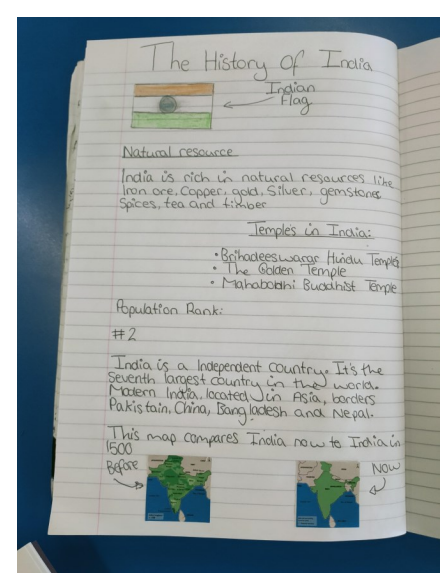 The History Of India
Indian
Flag
Natural resource
India is rich in natural resources like
Iron ore, Copper, gold, Silver, gemstones
Spices, tea and timber
Temples in India:
• Brihadeeswarar Huidu Temple
• The Golden Temple
• Mahabodhi Buddhist Temple
Population Rank:
#2
India is a Independent country. It's the
Seventh largest country in the world.
Modern India, located in Asia, borders
Pakistain, China, Bangladesh and Nepal.
This map compares India now to India in
1500
Before
Now